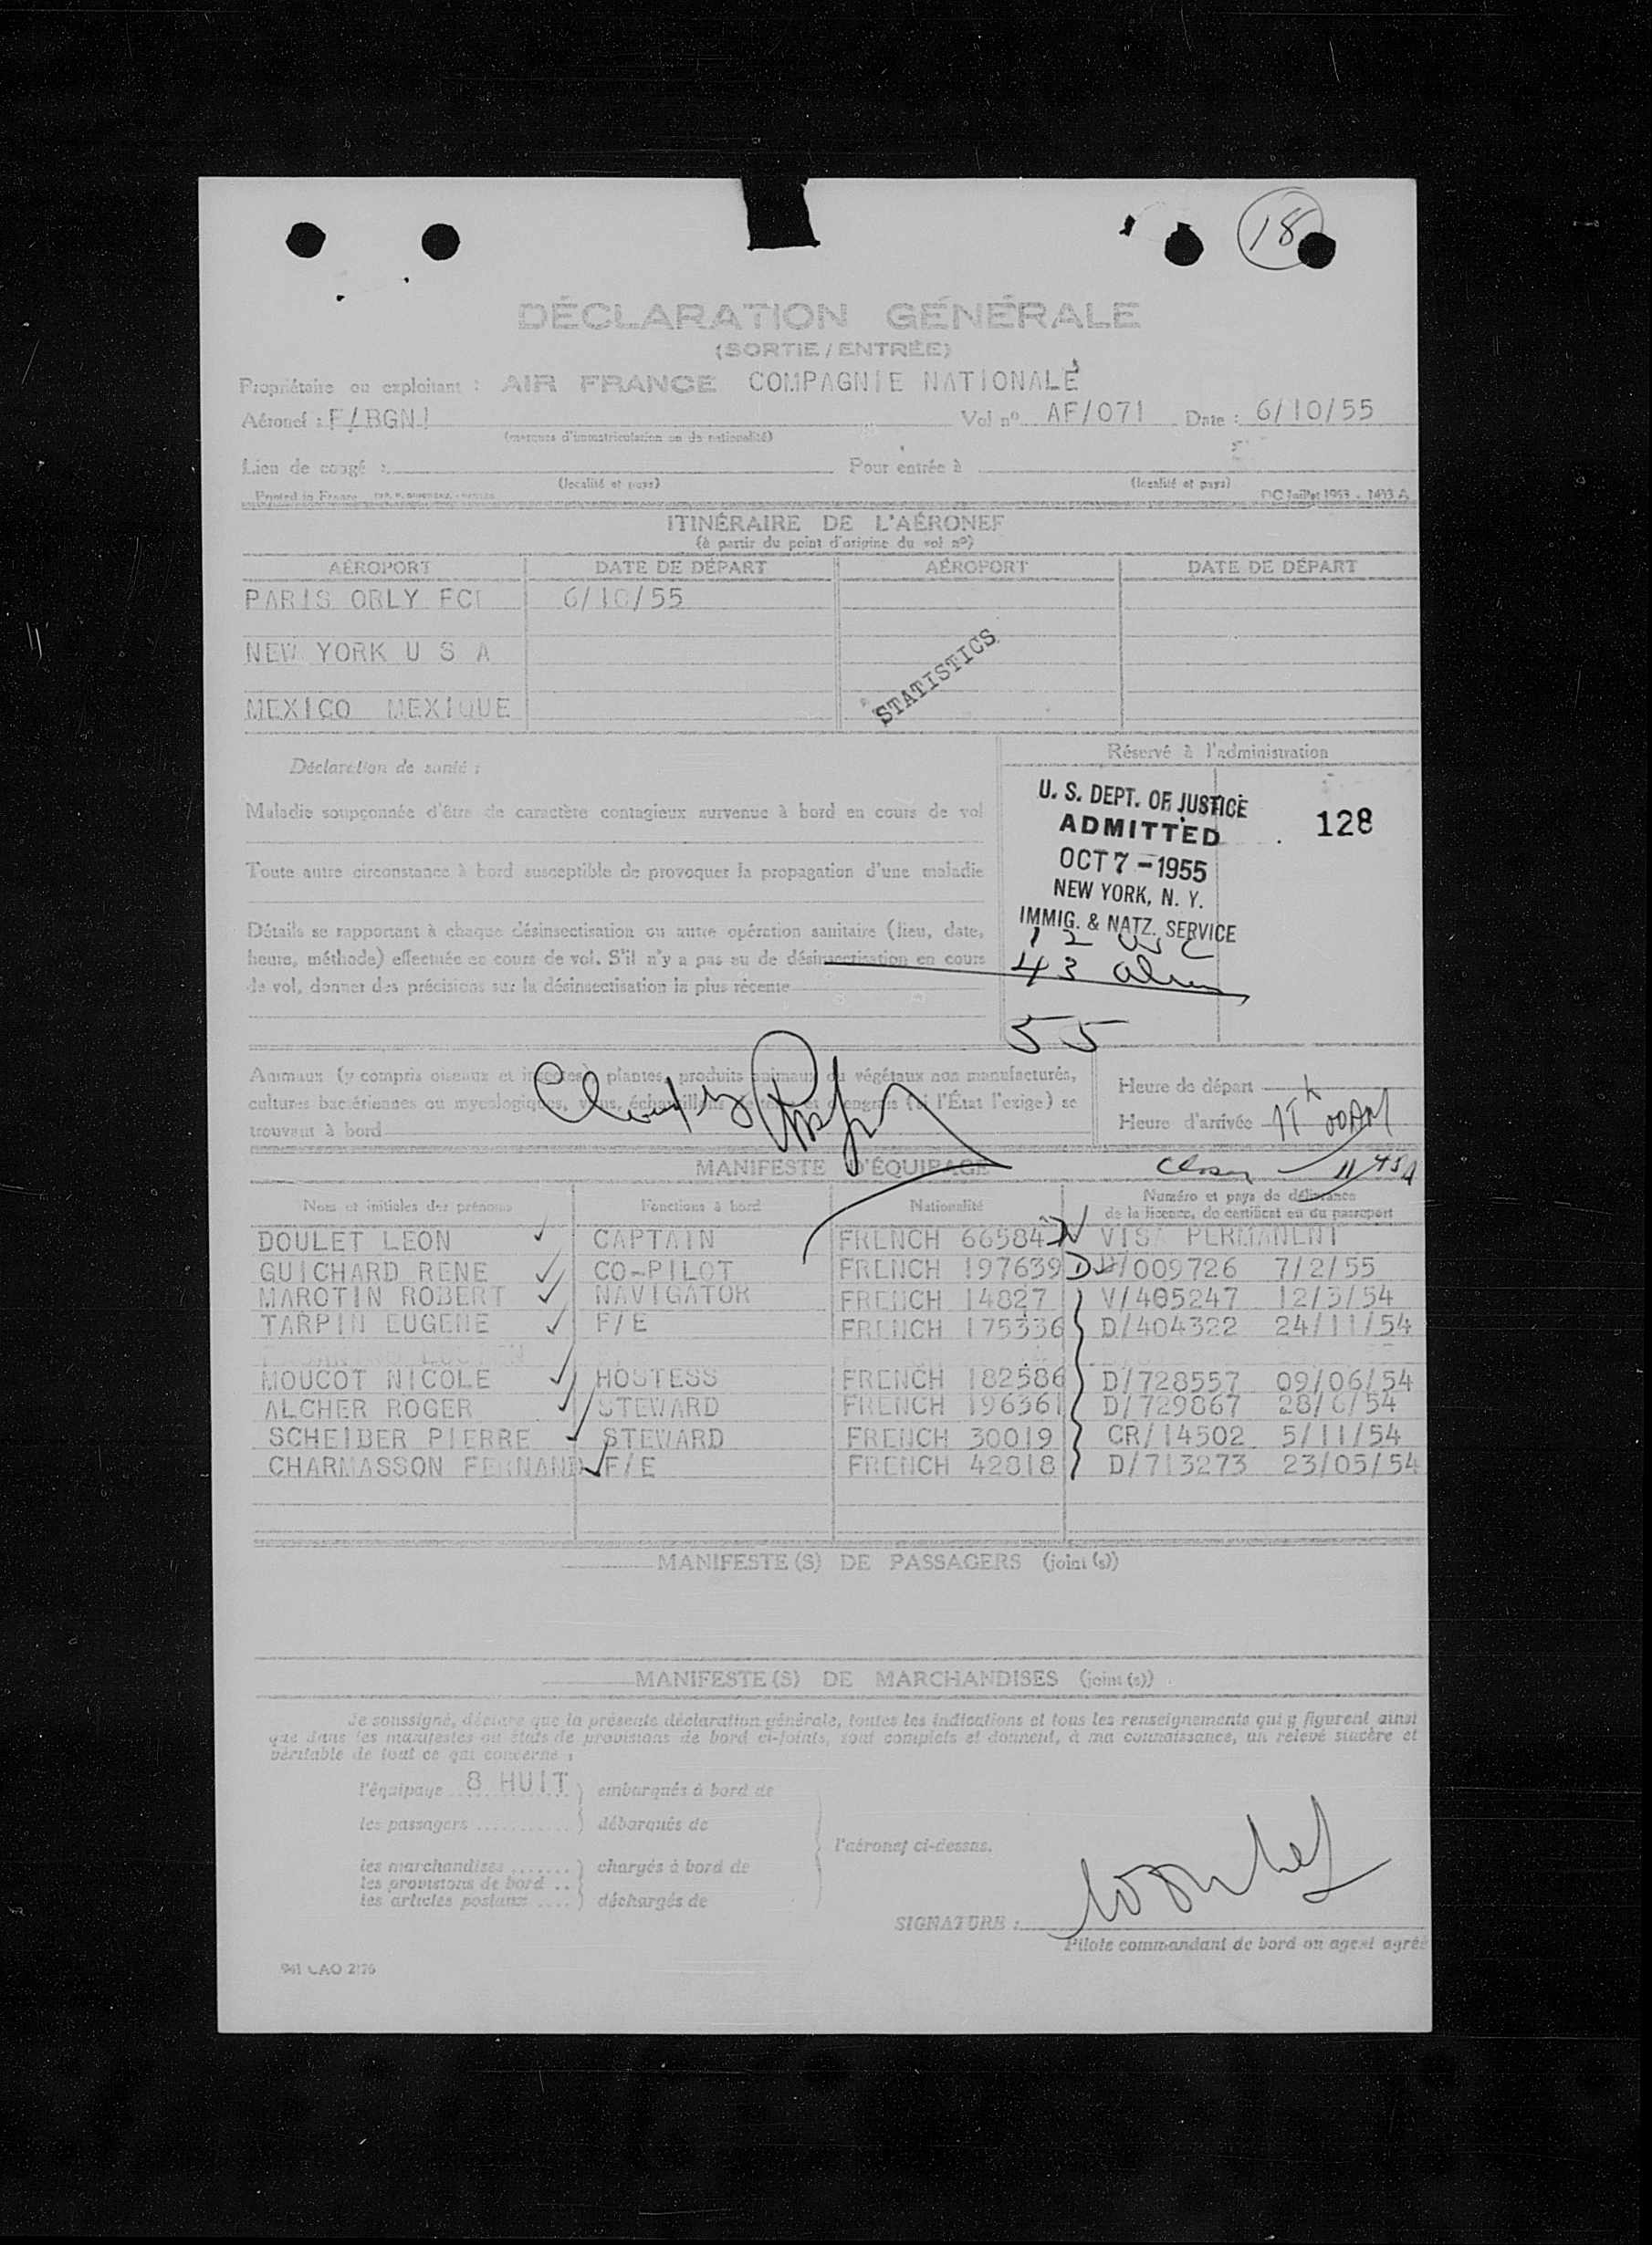 18
DÉCLARATION GÉNÉRALE
(SORTIE / ENTRÉE)
Propriétaire ou exploitant : AIR FRANCE COMPAGNIE NATIONALE
Aéronef : F/BGNJ Vol nº AF/071 Date : 6/10/55
(marques d'immatriculation ou de nationalité)
Lieu de congé : Pour entrée à
(localité et pays) (localité et pays)
Printed in France DC Juillet 1953 - 1493 A
ITINÉRAIRE DE L'AÉRONEF
(à partir du point d'origine du vol nº)
AÉROPORT DATE DE DÉPART AÉROPORT DATE DE DÉPART
PARIS ORLY FCE 6/10/55
NEW YORK U S A
MEXICO MEXIQUE
STATISTICS
Réservé à l'administration
Déclaration de santé :
Maladie soupçonnée d'être de caractère contagieux survenue à bord en cours de vol
Toute autre circonstance à bord susceptible de provoquer la propagation d'une maladie
Détails se rapportant à chaque désinsectisation ou autre opération sanitaire (lieu, date,
heure, méthode) effectuée en cours de vol. S'il n'y a pas eu de désinsectisation en cours
de vol, donner des précisions sur la désinsectisation la plus récente
U. S. DEPT. OF JUSTICE
ADMITTED
128
OCT 7 - 1955
NEW YORK, N. Y.
IMMIG. & NATZ. SERVICE
12 USC
43 alien
55
Animaux (y compris oiseaux et insectes) plantes, produits animaux ou végétaux non manufacturés,
cultures bactériennes ou mycologiques, virus, échantillons de terre et d'engrais (si l'État l'exige) se
trouvant à bord
Heure de départ
Heure d'arrivée 11 00AM
11 45A
MANIFESTE D'ÉQUIPAGE
Noms et initiales des prénoms Fonctions à bord Nationalité Numéro et pays de délivrance
de la licence, du certificat ou du passeport
DOULET LEON CAPTAIN FRENCH 66584 VISA PERMANENT
GUICHARD RENE CO-PILOT FRENCH 197639 D/009726 7/2/55
MAROTIN ROBERT NAVIGATOR FRENCH 14827 V/405247 12/3/54
TARPIN EUGENE F/E FRENCH 175336 D/404322 24/11/54
MOUCOT NICOLE HOSTESS FRENCH 182586 D/728557 09/06/54
ALCHER ROGER STEWARD FRENCH 196361 D/729867 28/6/54
SCHEIBER PIERRE STEWARD FRENCH 30019 CR/14502 5/11/54
CHARMASSON FERNAND F/E FRENCH 42818 D/713273 23/05/54
MANIFESTE (S) DE PASSAGERS (joint (s))
MANIFESTE (S) DE MARCHANDISES (joint (s))
Je soussigné, déclare que la présente déclaration générale, toutes les indications et tous les renseignements qui y figurent ainsi
que dans les manifestes ou états de provisions de bord ci-joints, sont complets et donnent, à ma connaissance, un relevé sincère et
véritable de tout ce qui concerne :
l'équipage 8 HUIT ) embarqués à bord de
les passagers ........... ) débarqués de
l'aéronef ci-dessus.
les marchandises ....... ) chargés à bord de
les provisions de bord ..
les articles postaux .... ) déchargés de
SIGNATURE :
Pilote commandant de bord ou agent agréé